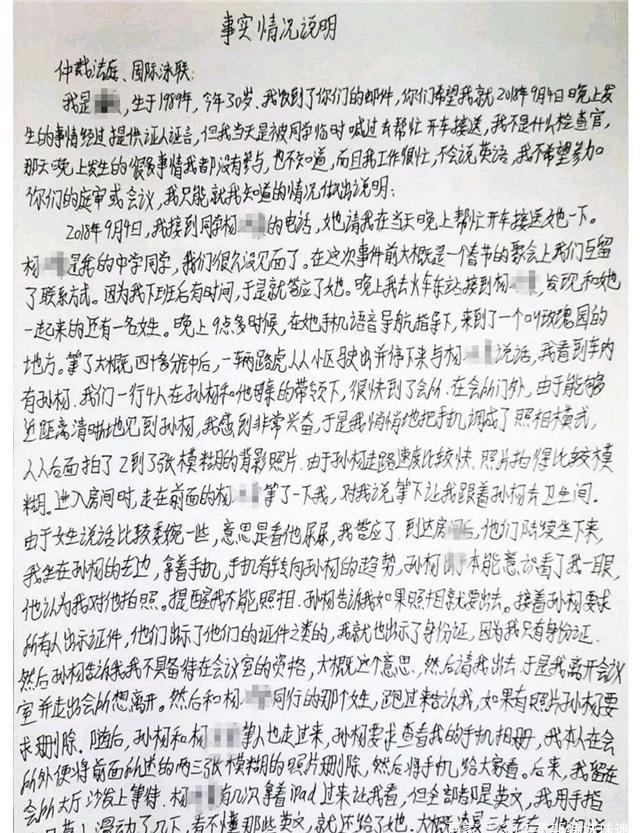 事实情况说明
仲裁法庭、国际泳联:
我是,生于1989年,今年30岁。我收到了你们的邮件,你们希望我就2018年9月4日晚上发
生的事情经过提供证人证言,但我当天是被同学临时喊过去帮忙开车接送,我不是什么检查官,
那天晚上发生的很多事情我都没有参与,也不知道,而且我工作很忙,不会说英语,我不希望参加
你们的庭审或会议,我只能就我知道的情况做出说明:
2018年9月4日,我接到同学杨的电话,她请我在当天晚上帮忙开车接送她一下。
杨是我的中学同学,我们很久没见面了。在这次事件前大概是一个春节的歌会上我们互留
了联系方式。因为我下班后有时间,于是就答应了她。晚上我去火车东站接到杨,发现和她
一起来的还有一名女性。晚上9点多时候,在她手机语音导航指导下,来到了一个叫玫瑰园的
地方。等了大概四十多分钟后,一辆路虎从小区驶出并停下来与杨说话,我看到车内
有孙杨,我们一行4人在孙杨和他母亲的带领下,很快到了会所。在会所门外,由于能够
近距离清晰地见到孙杨,我感到非常兴奋,于是我悄悄地把手机调成了照相模式,
从后面拍了2到3张模糊的背影照片。由于孙杨走路速度比较快,照片拍得比较模
糊。进入房间时,走在前面的杨等了一下我,对我说等下让我跟着孙杨去卫生间。
由于女生说话比较委婉一些,意思是看他尿尿,我答应了。到达房间后,他们陆续坐下来,
我坐在孙杨的右边,拿着手机,手机有转向孙杨的趋势,孙杨本能意识看了我一眼,
他认为我对他拍照。提醒我不能照相。孙杨告诉我如果照相就要出去。接着孙杨要求
所有人出示证件,他们出示了他们的证件之类的,我就也出示了身份证,因为我只有身份证.
然后孙杨告诉我我不具备待在会议室的资格,大概这个意思,然后请我出去。于是我离开会议
室并走出会所想离开。然后和杨同行的那个女性,跑过来告诉我,如果有照片孙杨要
求删除。随后,孙杨和杨等人也走过来,孙杨要求查看我的手机相册,我本人在会
所外便将前面所述的两三张模糊的照片删除,然后将手机给大家看。后来,我留在
会所大厅沙发上等待。杨有几次拿着iPad过来让我看,但全部都是英文,我用手指
滑动了几下,看不懂那些英文,就还给了她。大概